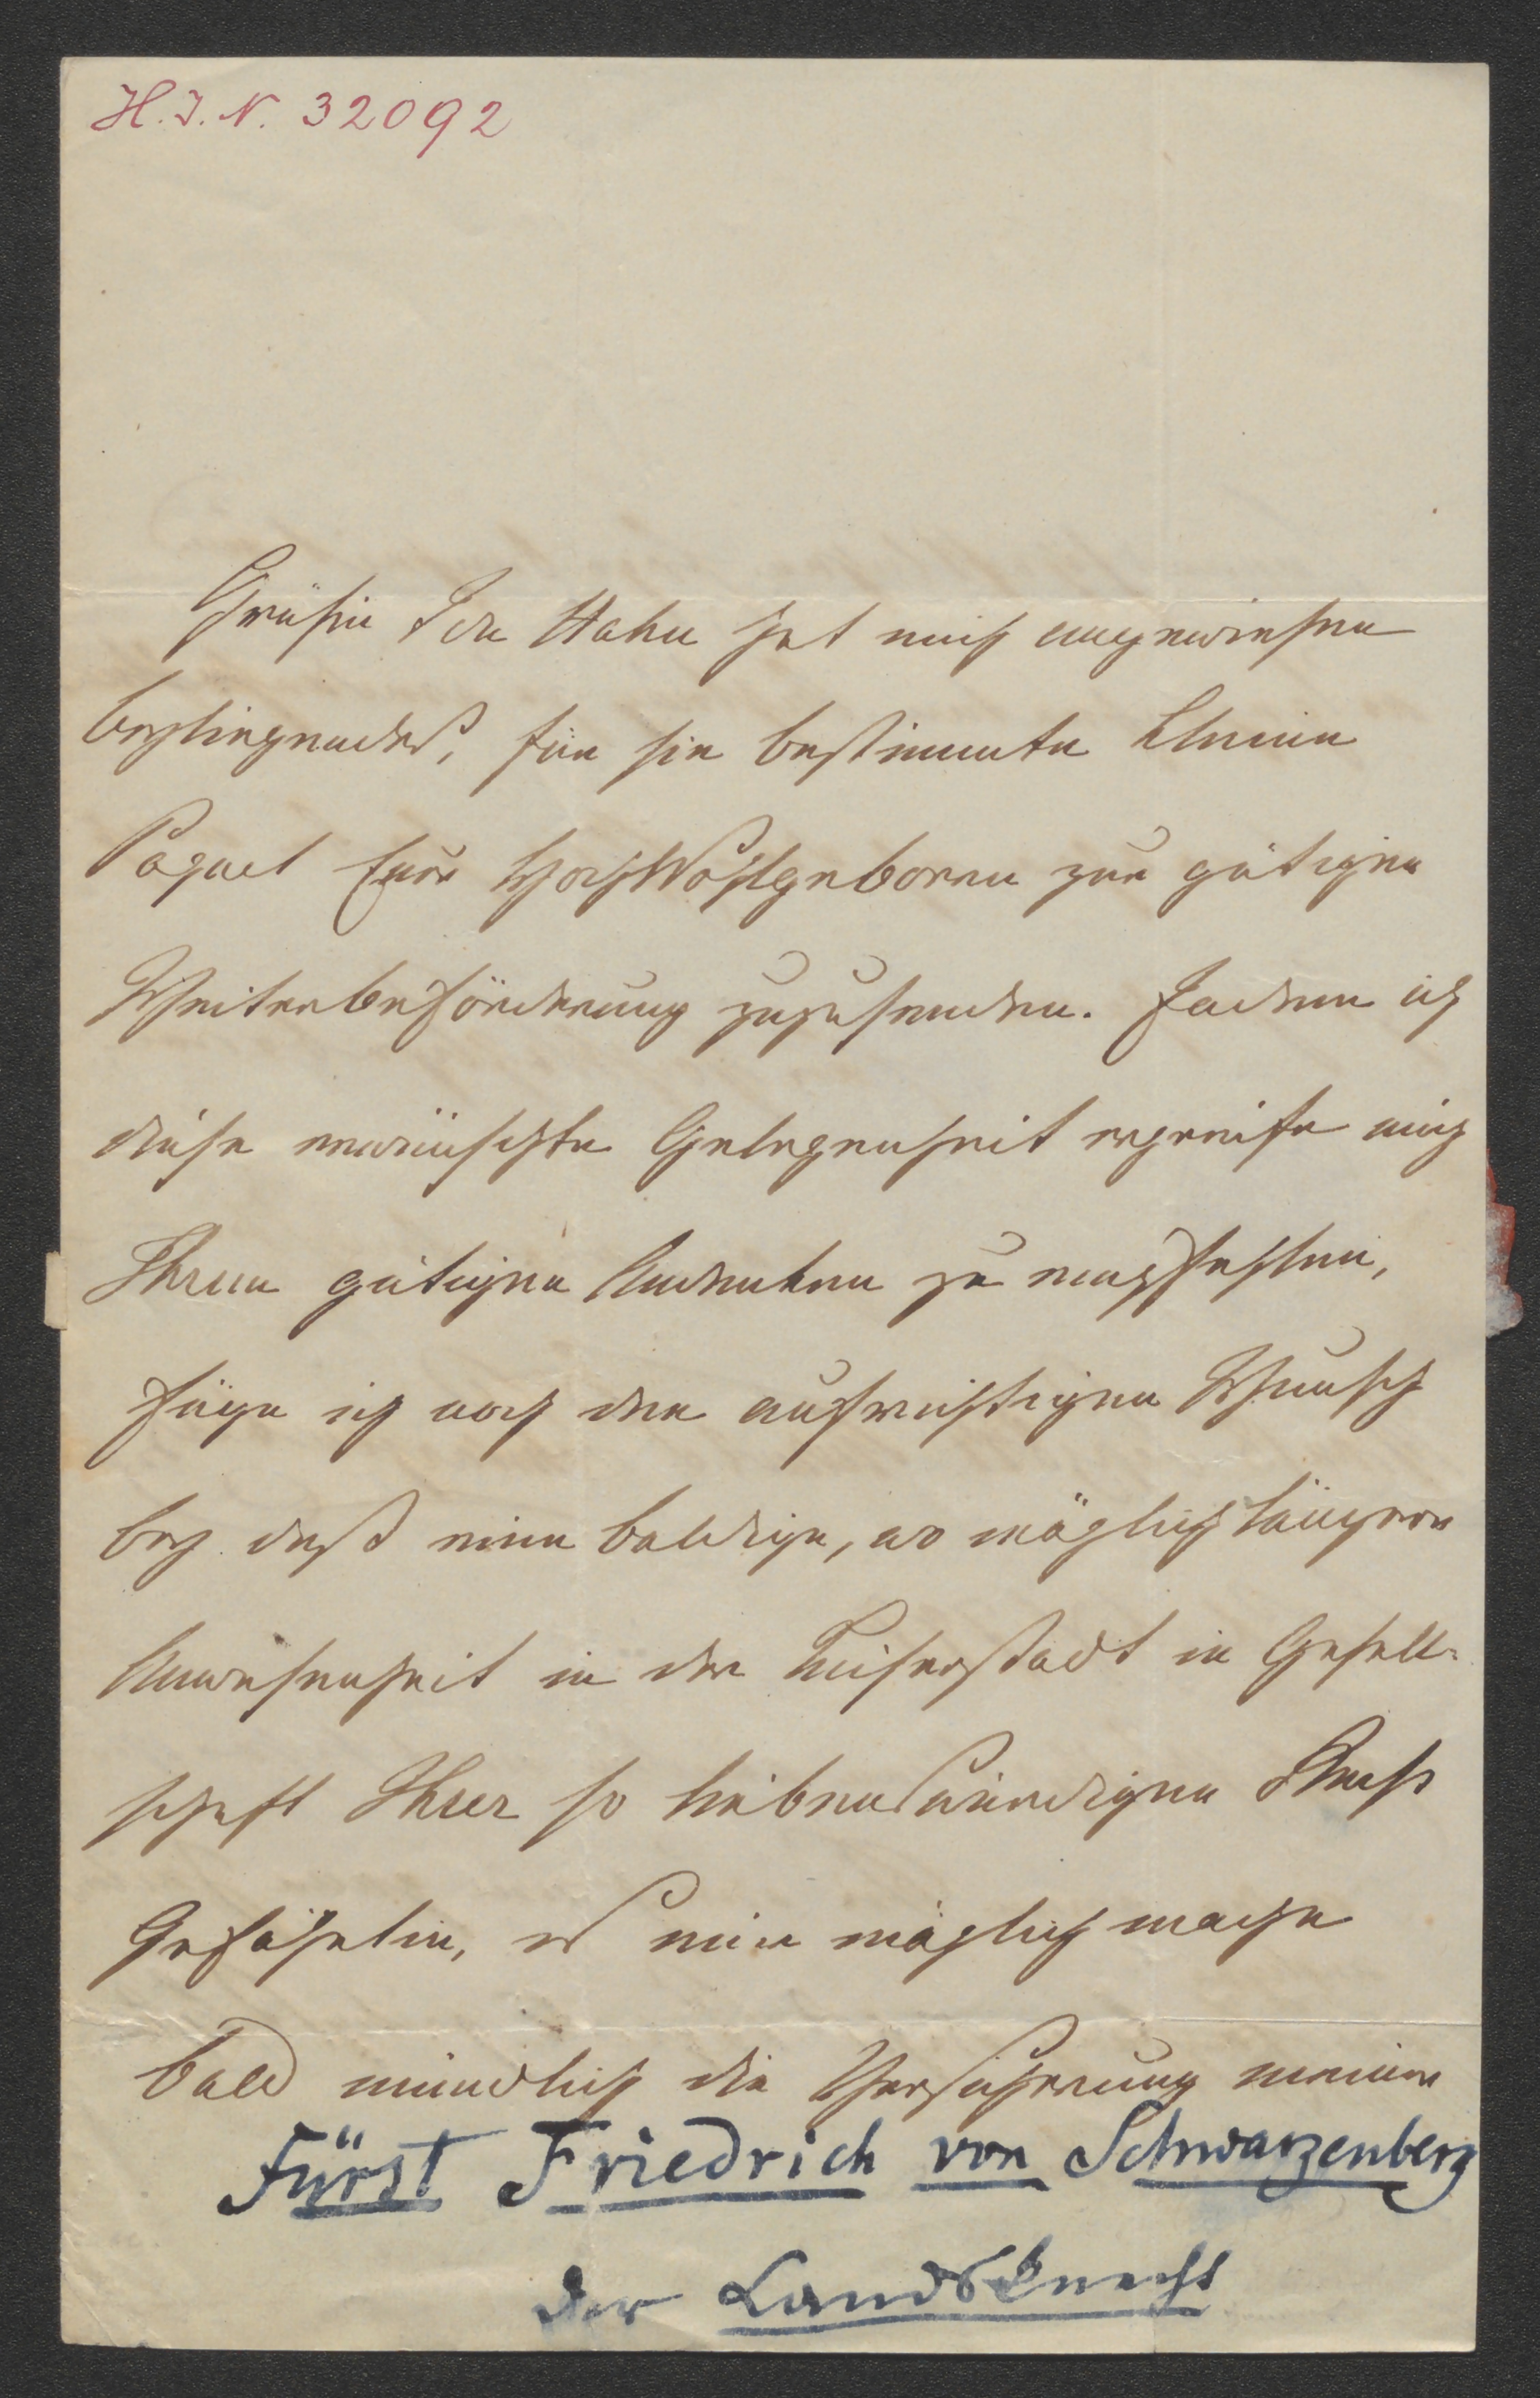 H. I. N. 32092
Gräfin Ida Hahn hat mich angewiesen
beyliegendes, für sie bestimmte kleine
Paquet Euer HochWohlgeboren zur gütigen
Weiterbeförderung zuzusenden. Indem ich
diese erwünschte Gelegenheit ergreife mich
Ihrem gütigen Andenken zu empfehlen,
füge ich noch den aufrichtigen Wunsch
bey daß eine baldige, wo möglich längere
Anwesenheit in der Kaiserstadt in Gesell-
schaft Ihrer so liebenswürdigen
Gefährtin, es mir möglich mache
bald mündlich die Versicherung meiner
Fürst Friedrich von Schwarzenberg
der Landsknecht